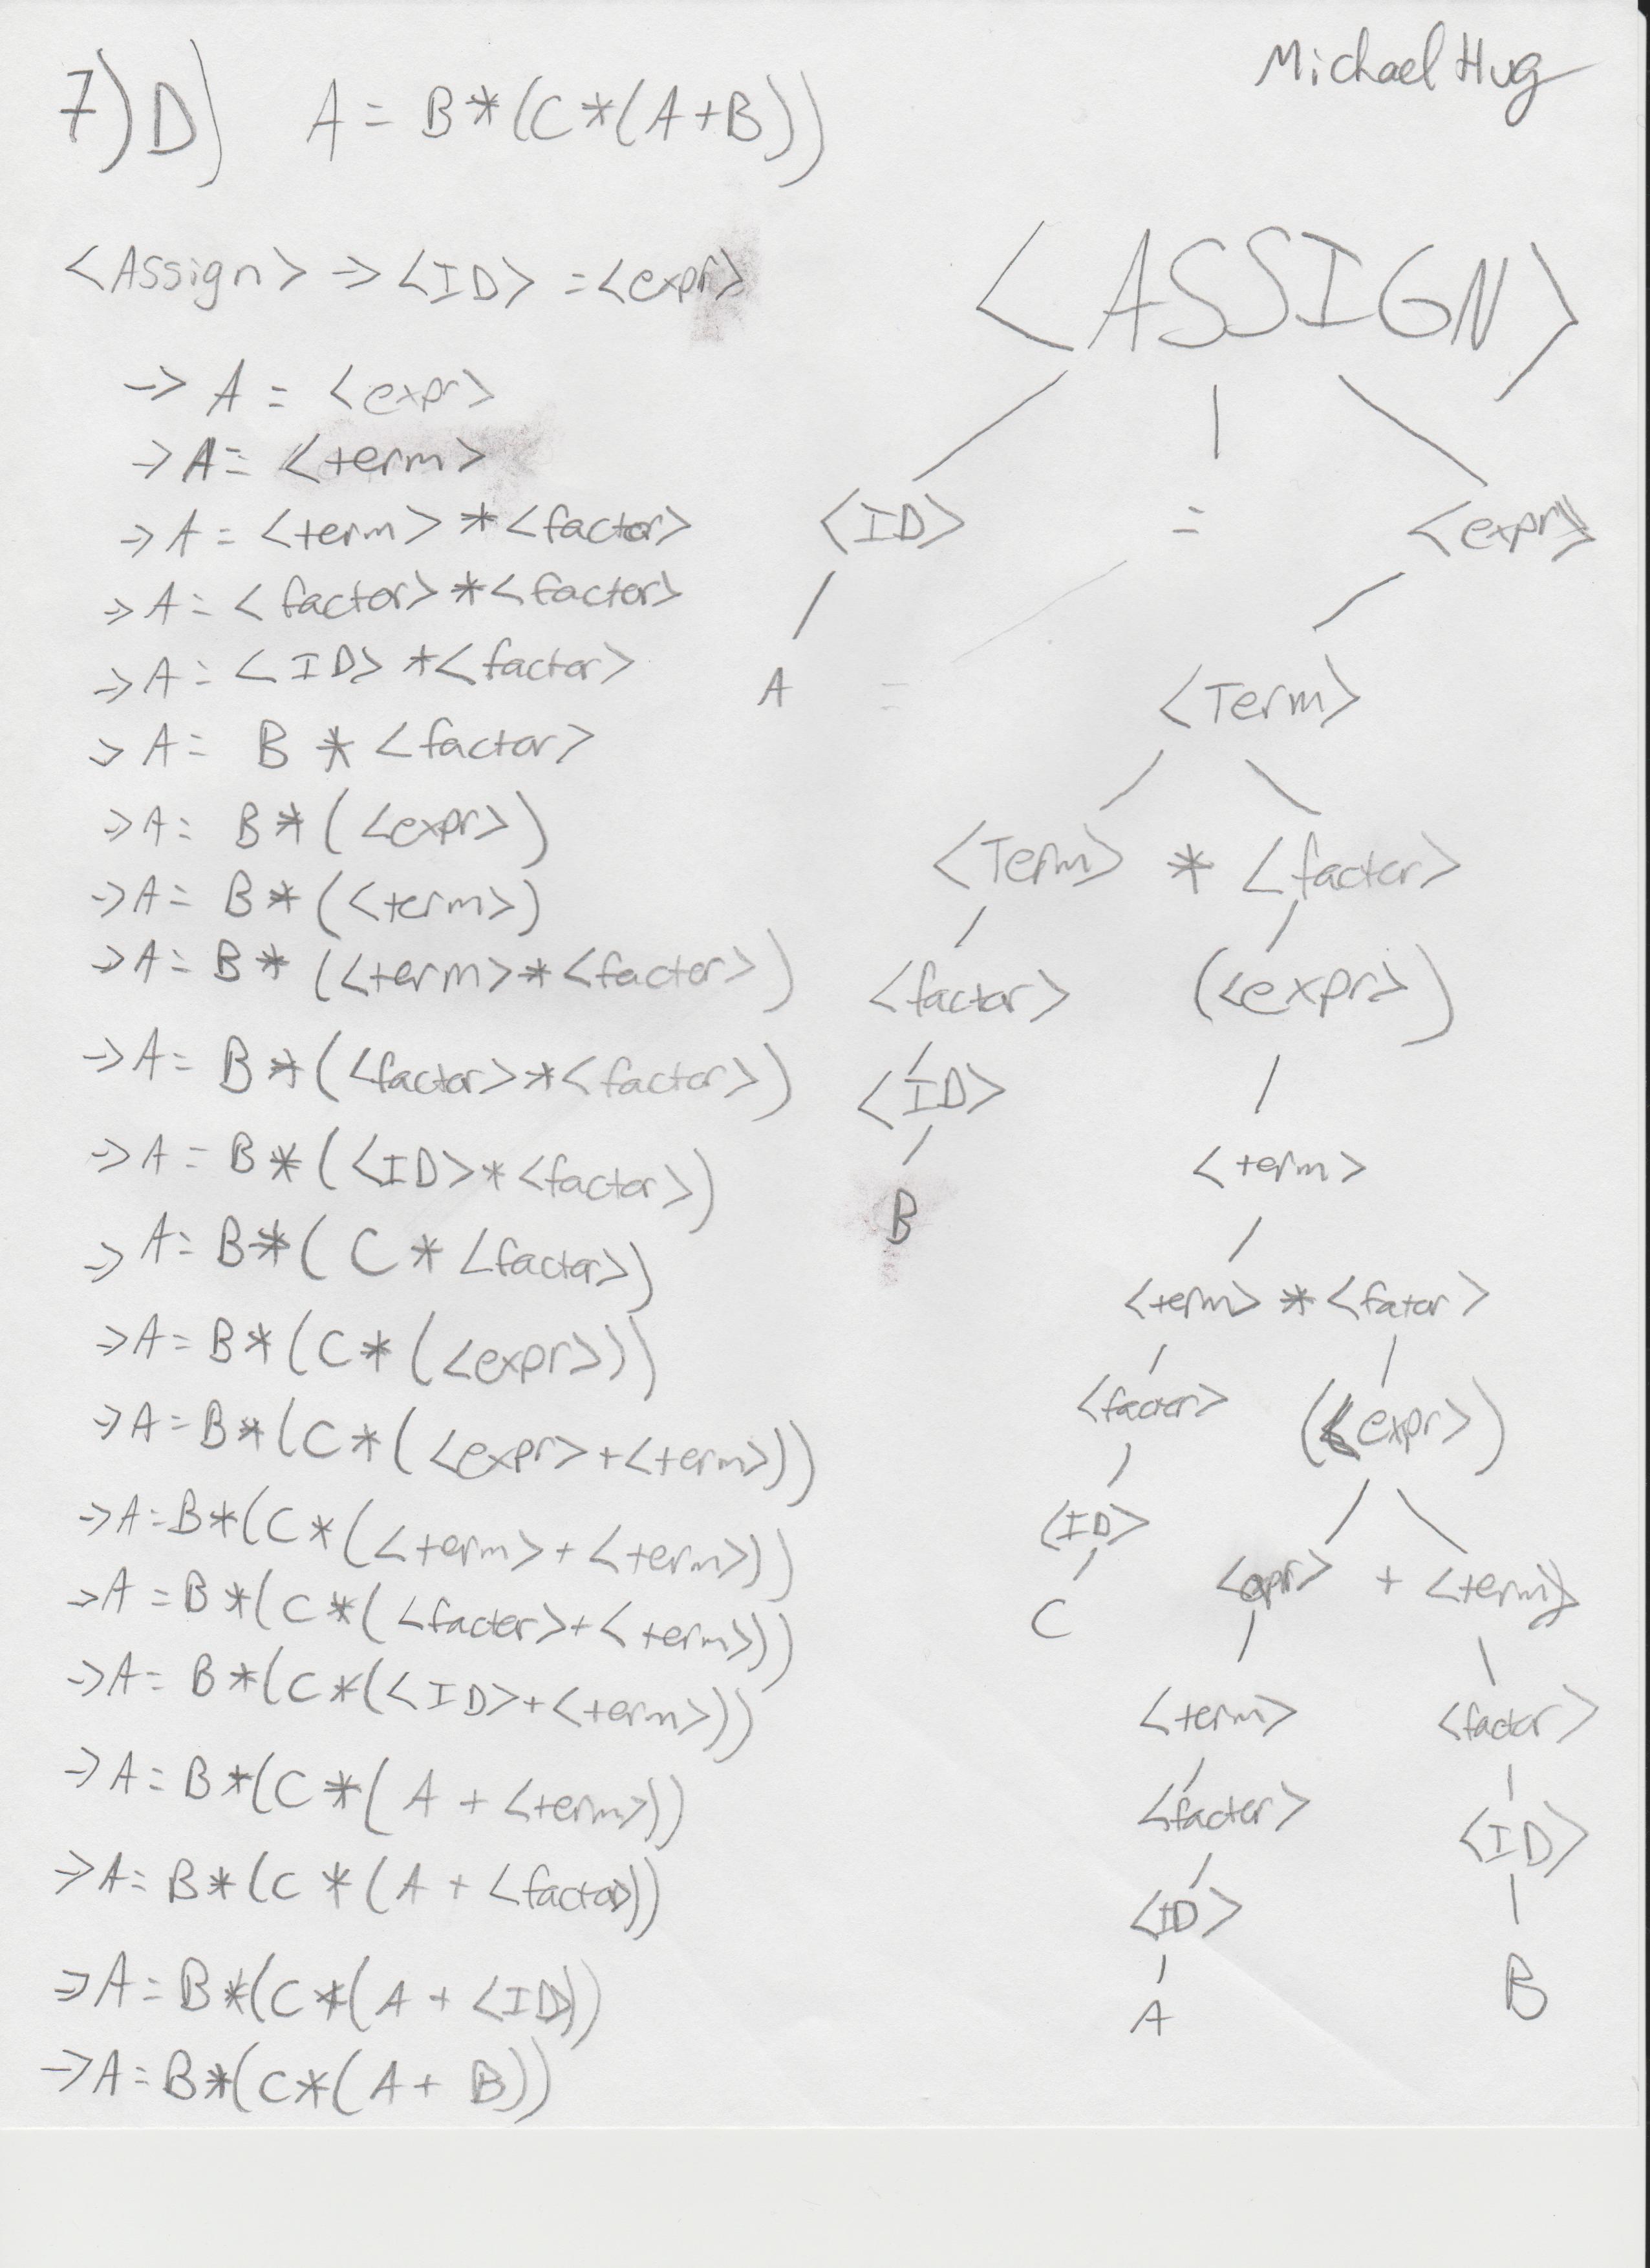 Michael Hug
7) D) A = B*(C*(A+B))
<Assign> → <ID> = <expr>
→ A = <expr>
→ A = <term>
→ A = <term> * <factor>
→ A = <factor> * <factor>
→ A = <ID> * <factor>
→ A = B * <factor>
→ A = B * (<expr>)
→ A = B * (<term>)
→ A = B * (<term> * <factor>)
→ A = B * (<factor> * <factor>)
→ A = B * (<ID> * <factor>)
→ A = B * (C * <factor>)
→ A = B * (C * (<expr>))
→ A = B * (C * (<expr> + <term>))
→ A = B * (C * (<term> + <term>))
→ A = B * (C * (<factor> + <term>))
→ A = B * (C * (<ID> + <term>))
→ A = B * (C * (A + <term>))
→ A = B * (C * (A + <factor>))
→ A = B * (C * (A + <ID>))
→ A = B * (C * (A + B))
<ASSIGN>
<ID> = <expr>
A =
<Term>
<Term> * <factor>
<factor> (<expr>)
<ID>
<term>
B
<term> * <fator>
<factor> (<expr>)
<ID>
<expr> + <term>
C
<term> <factor>
<factor> <ID>
<ID>
A B